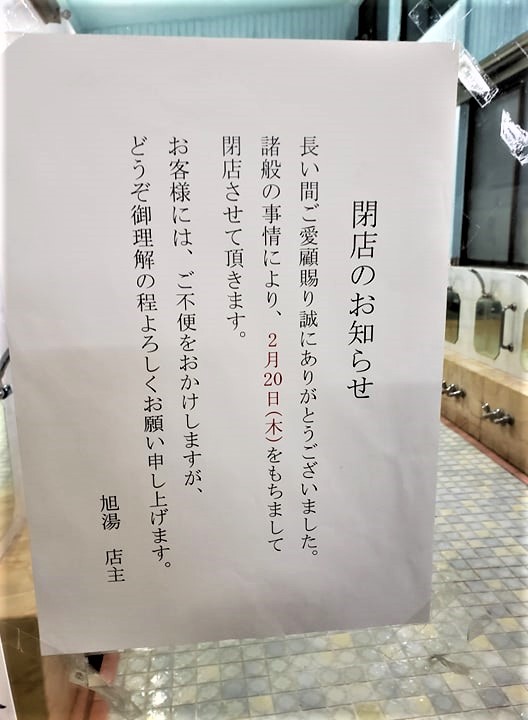 閉店のお知らせ
長い間ご愛顧賜り誠にありがとうございました。
諸般の事情により、2月20日(木)をもちまして
閉店させて頂きます。
お客様には、ご不便をおかけしますが、
どうぞ御理解の程よろしくお願い申し上げます。
旭湯 店主